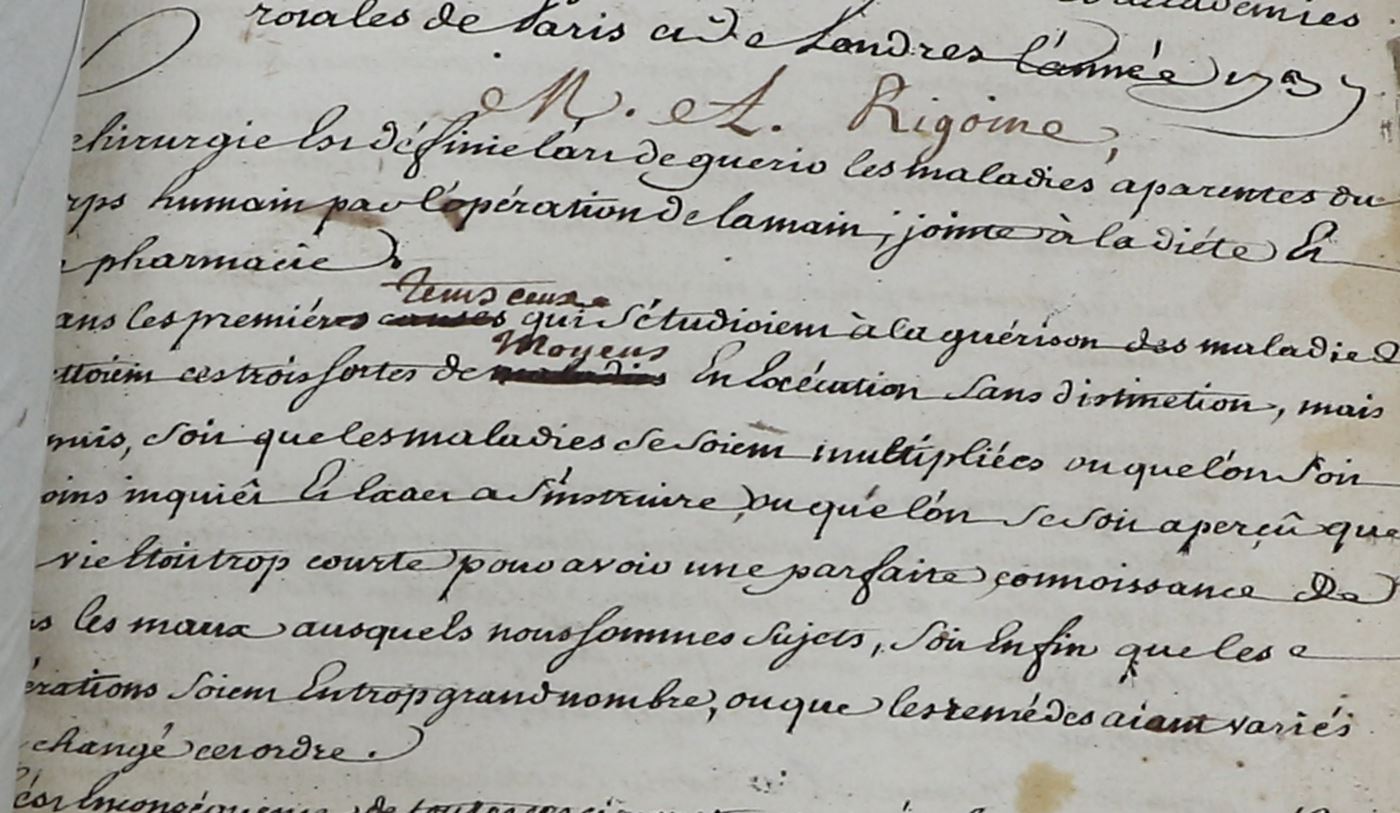 académies
roiales de Paris et de Londres l'année 1737
M. A. Rigoine,
chirurgie Est définie l'art de guerir les maladies aparentes du
rps humain par l'opération de la main, jointe à la diéte Et
pharmacie.
tems ceux
ans les premiéres causes qui s'étudioient à la guérison des maladies
Moyens
ettoient ces trois sortes de maladies En Exécution sans distinction, mais
puis, soit que les maladies se soient multipliées ou que l'on soit
oins inquiêt Et Exact a s'instruire, ou que l'on se soit aperçû que
vie Etoit trop courte pour avoir une parfaite connoissance de
s les maux ausquels nous sommes sujets, soit Enfin que les
érations soient En trop grand nombre, ou que les remédes aiant variés
changé cet ordre.
C'est de toutes